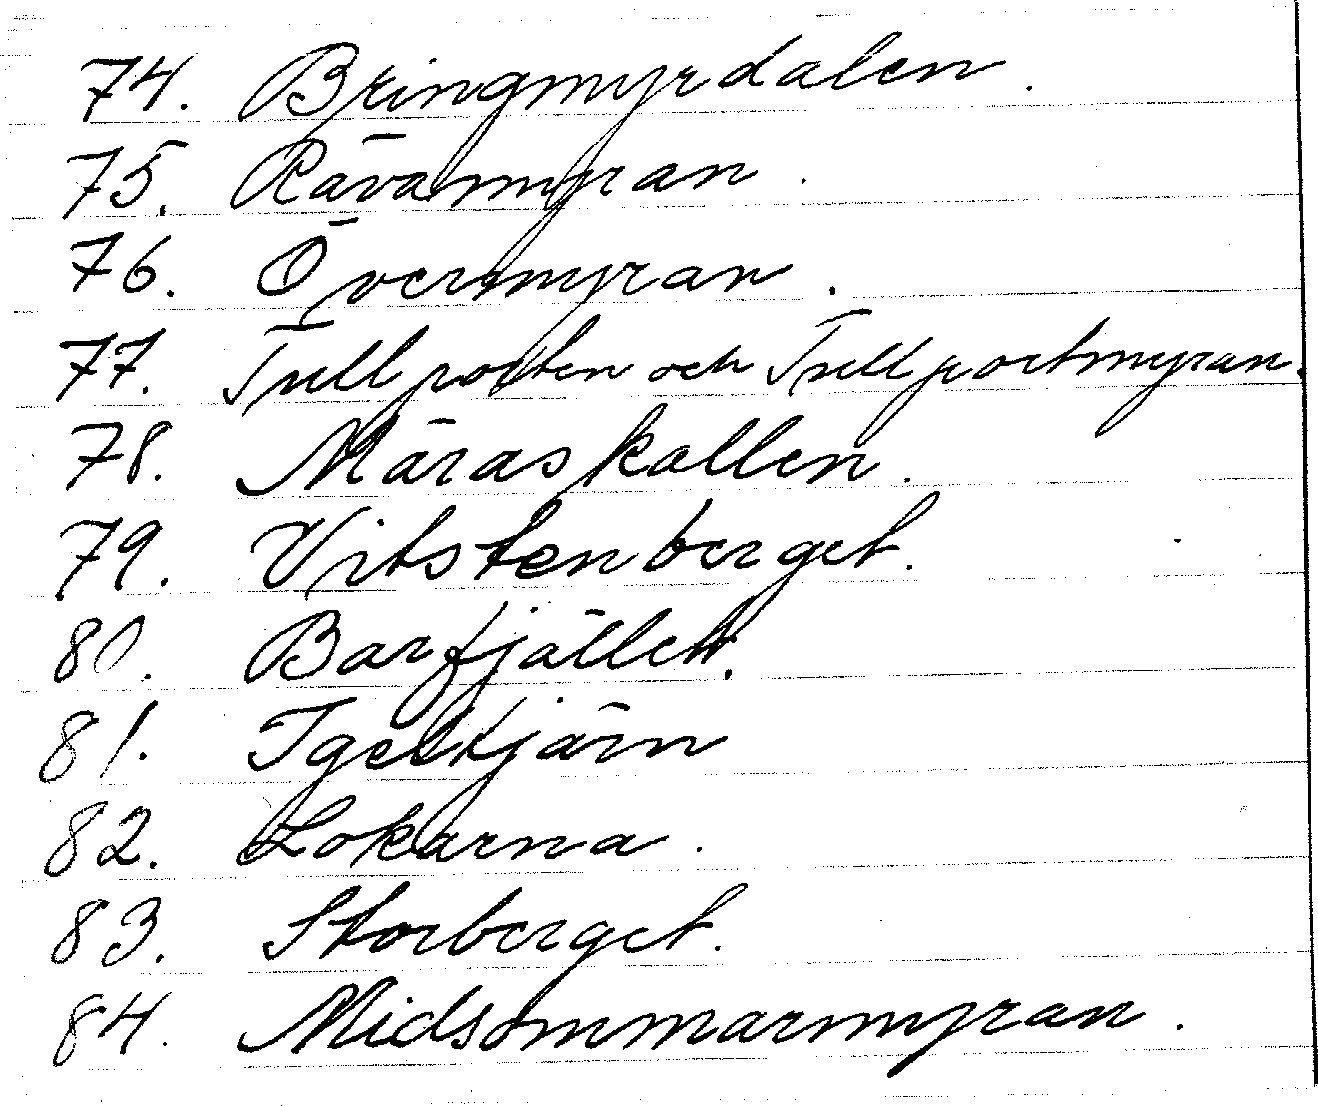 74. Bringmyrdalen.
75. Rävamyran.
76. Övermyran.
77. Trollporten och Trollportmyran.
78. Märaskallen.
79. Vitstenberget.
80. Barfjället.
81. Igeltjärn
82. Lokarna.
83. Storberget.
84. Midsommarmyran.